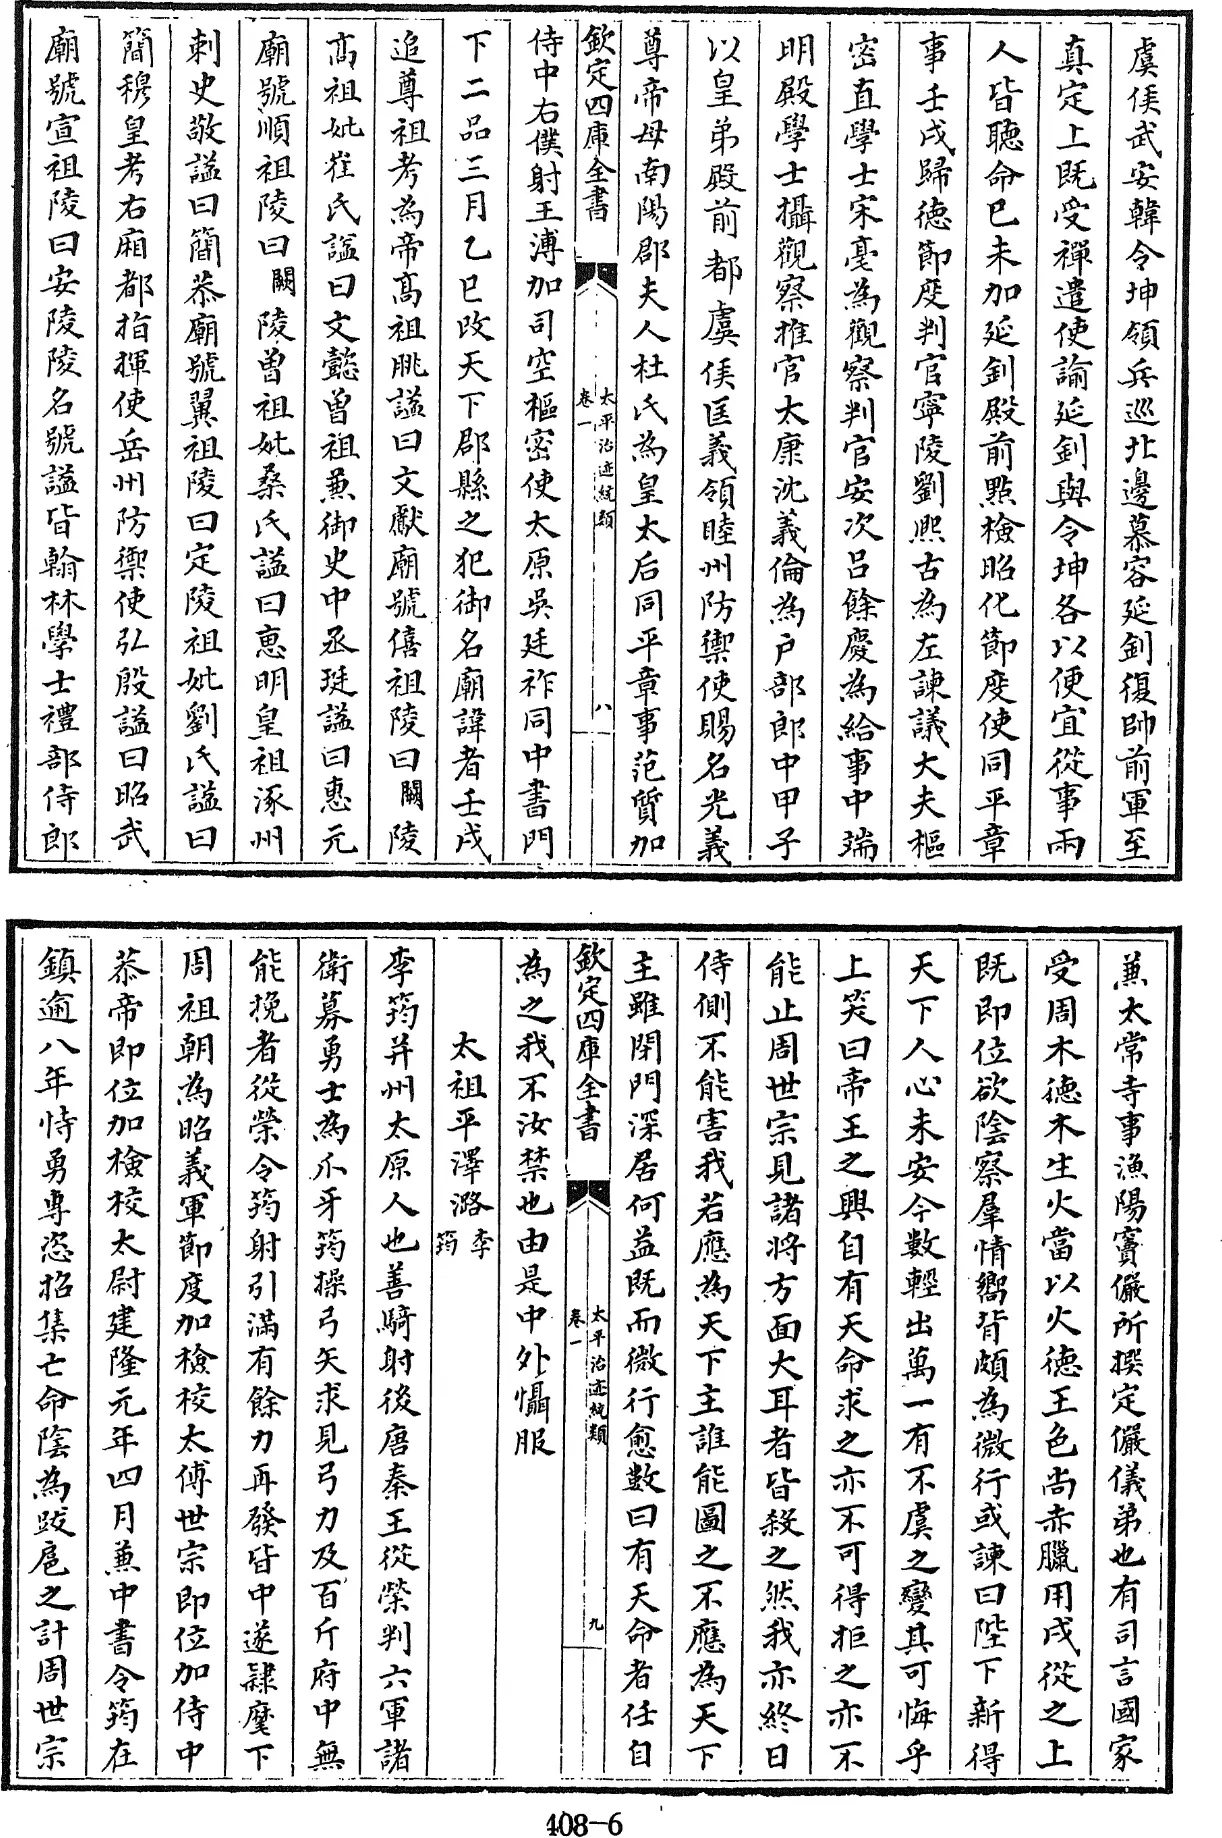 虞侯武安韓令坤領兵巡北邊慕容延釗復帥前軍至
真定上既受禪遣使諭延釗與令坤各以便宜從事兩
人皆聽命已未加延釗殿前點檢昭化節度使同平章
事壬戌歸德節度判官寧陵劉熈古為左諫議大夫樞
密直學士宋亳為觀察判官安次吕餘慶為給事中端
明殿學士攝觀察推官太康沈義倫為户部郎中甲子
以皇弟殿前都虞侯匡義領睦州防禦使賜名光義
尊帝母南陽郡夫人杜氏為皇太后同平章事范質加
欽定四庫全書
太平治迹統類
卷一
八
侍中右僕射王溥加司空樞密使太原吳廷祚同中書門
下二品三月乙巳改天下郡縣之犯御名廟諱者壬戌
追尊祖考為帝髙祖朓諡曰文獻廟號僖祖陵曰闕陵
髙祖妣崔氏諡曰文懿曾祖兼御史中丞珽諡曰惠元
廟號順祖陵曰闕陵曾祖妣桑氏諡曰惠明皇祖涿州
刺史敬諡曰簡恭廟號翼祖陵曰定陵祖妣劉氏諡曰
簡穆皇考右廂都指揮使岳州防禦使弘殷諡曰昭武
廟號宣祖陵曰安陵陵名號諡皆翰林學士禮部侍郎
兼太常寺事漁陽竇儼所撰定儼儀弟也有司言國家
受周木德木生火當以火德王色尚赤臘用戌從之上
既即位欲陰察羣情嚮背頗為微行或諫曰陛下新得
天下人心未安今數輕出萬一有不虞之變其可悔乎
上笑曰帝王之興自有天命求之亦不可得拒之亦不
能止周世宗見諸將方面大耳者皆殺之然我亦終日
侍側不能害我若應為天下主誰能圖之不應為天下
主雖閉門深居何益既而微行愈數曰有天命者任自
欽定四庫全書
太平治迹統類
卷一
九
為之我不汝禁也由是中外懾服
太祖平澤潞李筠
李筠并州太原人也善騎射後唐秦王從榮判六軍諸
衛募勇士為爪牙筠操弓矢求見弓力及百斤府中無
能挽者從榮令筠射引滿有餘力再發皆中遂隸麾下
周祖朝為昭義軍節度加檢校太傅世宗即位加侍中
恭帝即位加檢校太尉建隆元年四月兼中書令筠在
鎮逾八年恃勇專恣招集亡命陰為跋扈之計周世宗
408-6